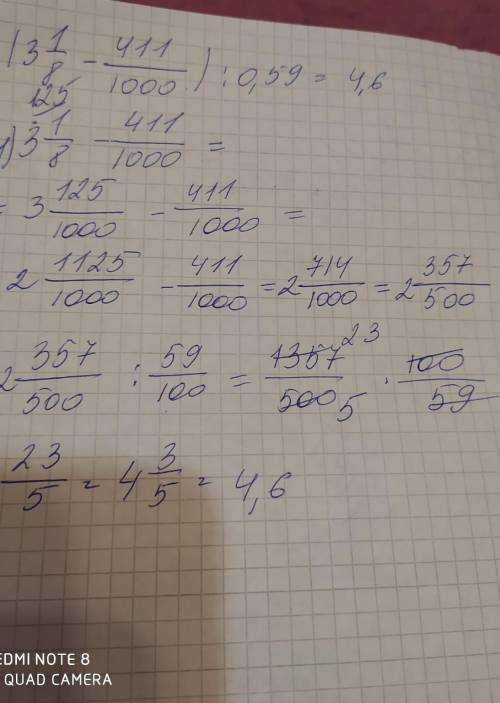 (3 1/8 - 411/1000) : 0,59 = 4,6
1) 3 1/8 125 - 411/1000 =
= 3 125/1000 - 411/1000 =
2 1125/1000 - 411/1000 = 2 714/1000 = 2 357/500
2 357/500 : 59/100 = 1357 23/500 5 · 100/59
23/5 = 4 3/5 = 4,6
EDMI NOTE 8
QUAD CAMERA